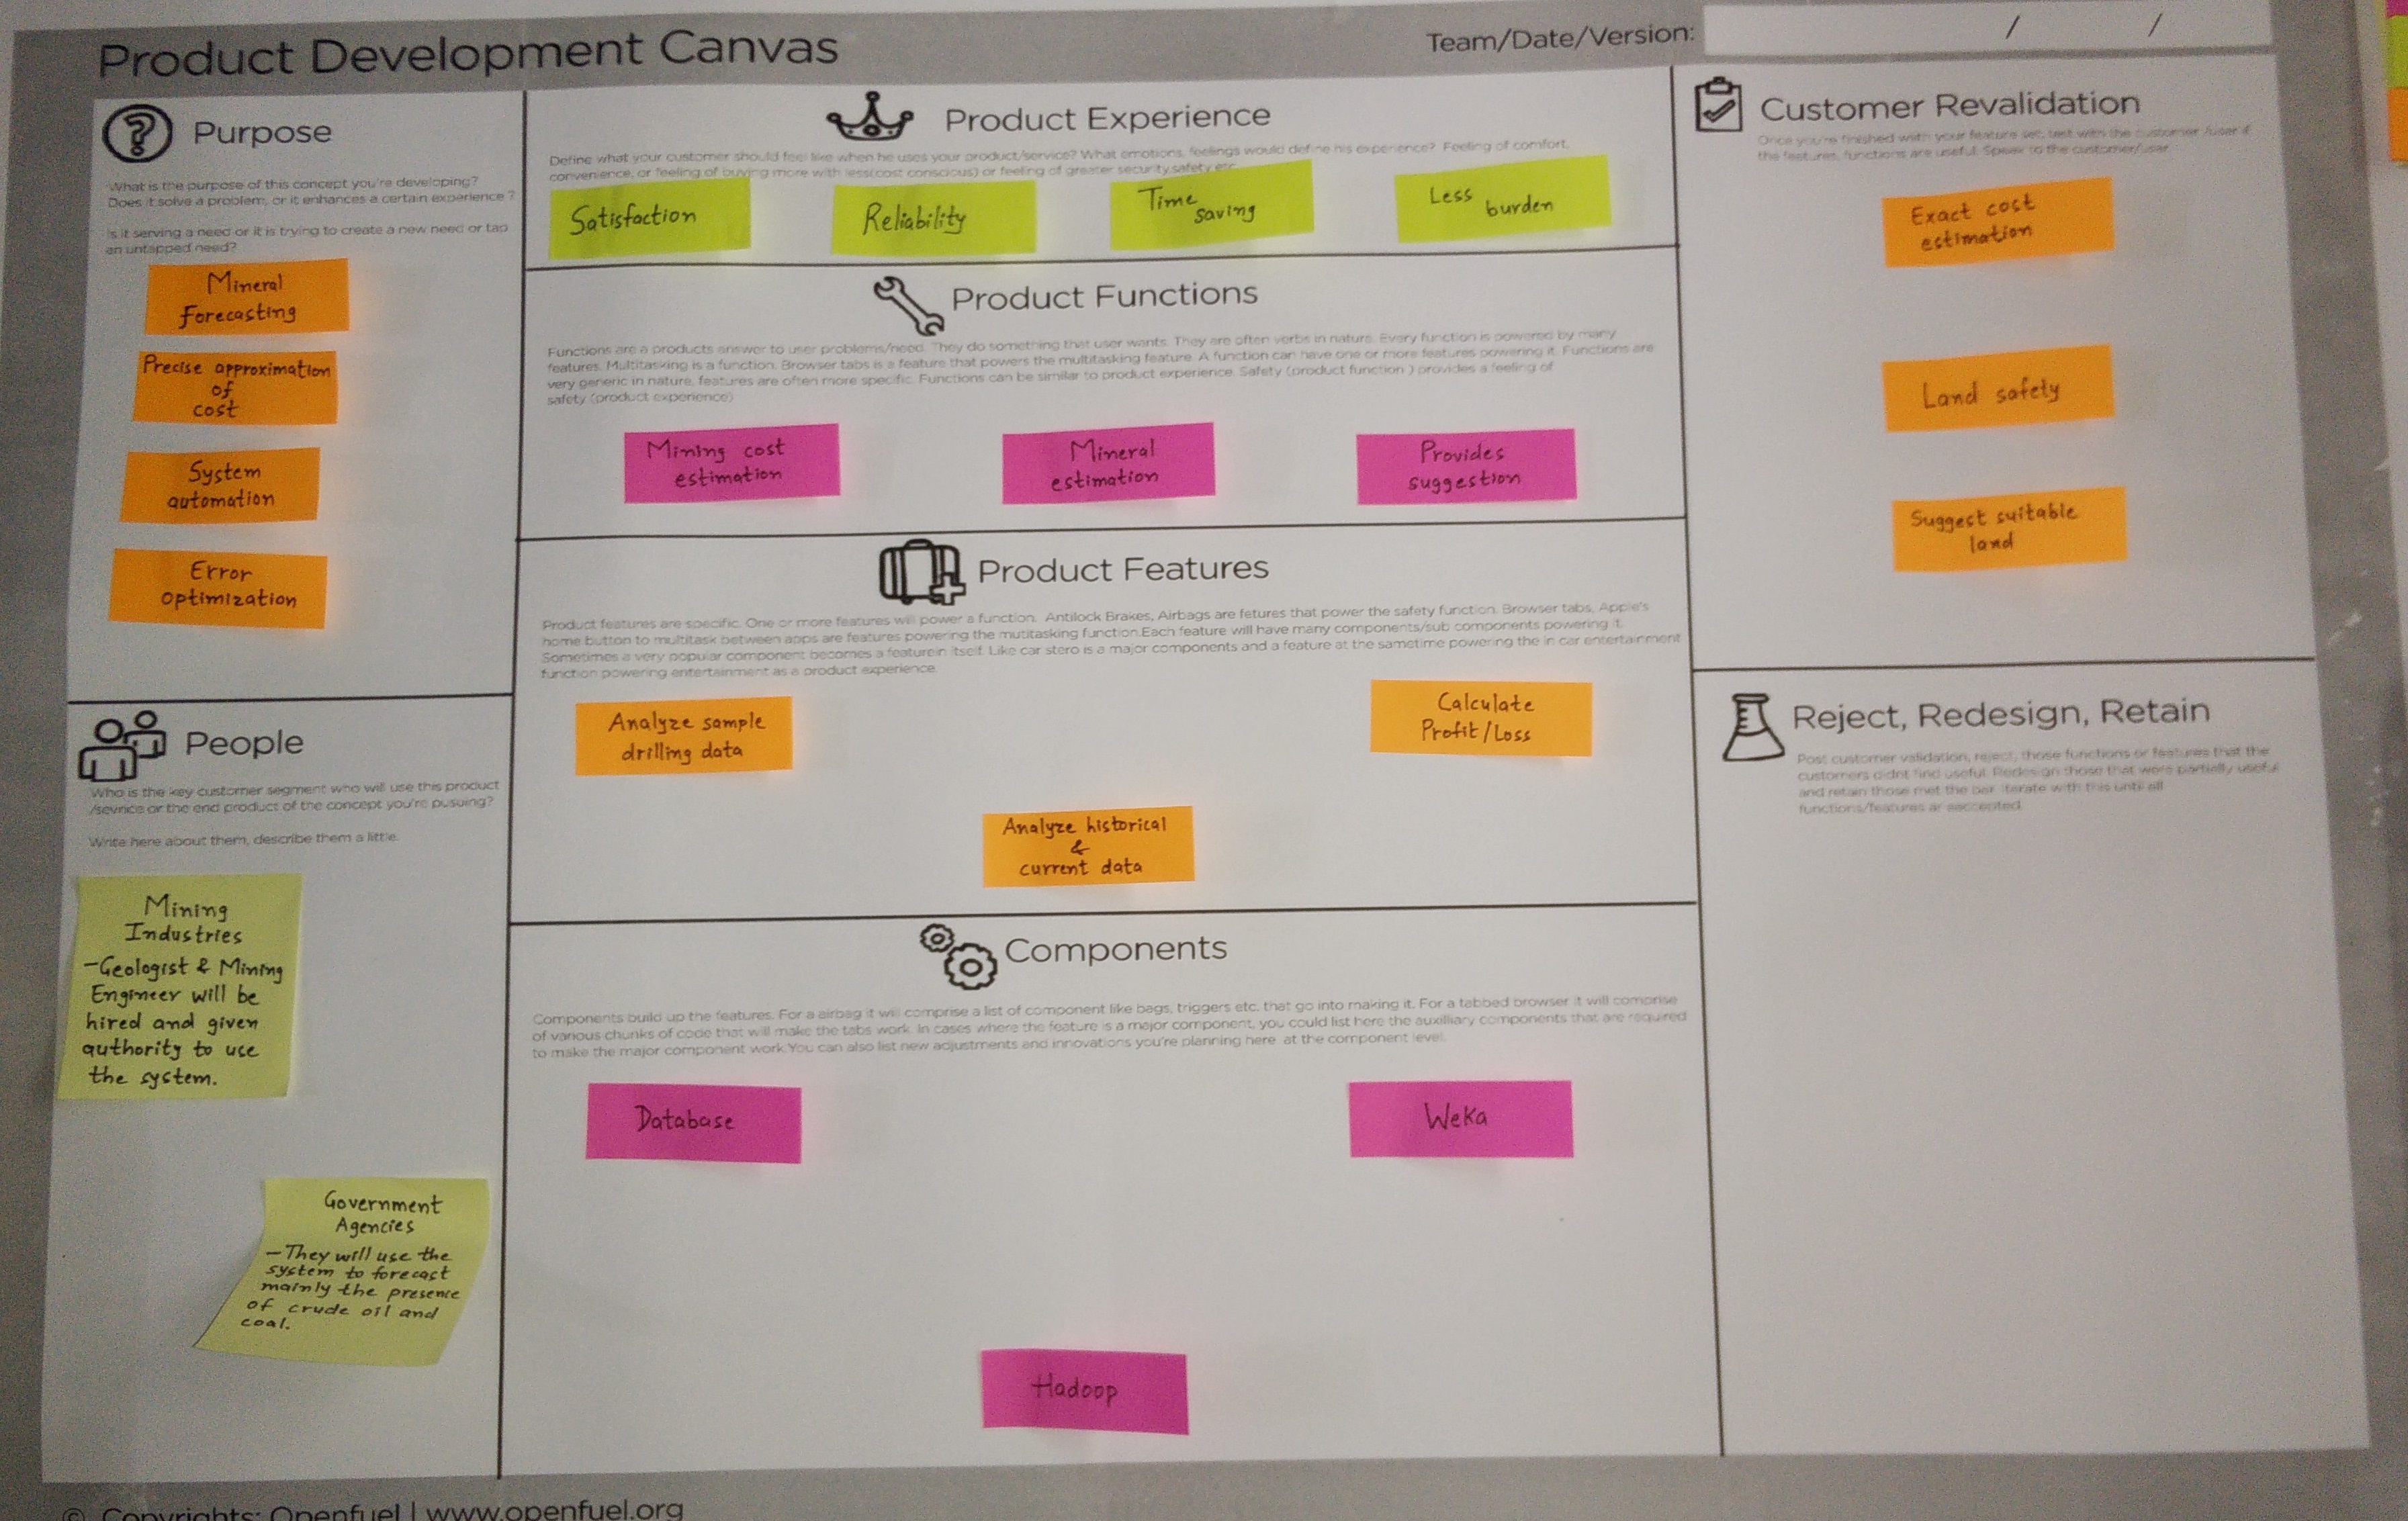 Product Development Canvas
Team/Date/Version:
/ /
Purpose
What is the purpose of this concept you're developing?
Does it solve a problem, or it enhances a certain experience ?
Is it serving a need or it is trying to create a new need or tap
an untapped need?
Mineral
Forecasting
Precise approximation
of
cost
System
automation
Error
Optimization
People
Who is the key customer segment who will use this product
/sevrice or the end product of the concept you're pusuing?
Write here about them, describe them a little.
Mining
Industries
-Geologist & Mining
Engineer will be
hired and given
authority to use
the system.
Government
Agencies
-They will use the
system to forecast
mainly the presence
of crude oil and
coal.
Product Experience
Define what your customer should feel like when he uses your product/service? What emotions, feelings would define his experience? Feeling of comfort,
convenience, or feeling of buying more with less(cost conscious) or feeling of greater security,safety etc
Satisfaction
Reliability
Time
saving
Less
burden
Product Functions
Functions are a products answer to user problems/need. They do something that user wants. They are often verbs in nature. Every function is powered by many
features. Multitasking is a function. Browser tabs is a feature that powers the multitasking feature. A function can have one or more features powering it. Functions are
very generic in nature, features are often more specific. Functions can be similar to product experience. Safety (product function ) provides a feeling of
safety (product experience)
Mining cost
estimation
Mineral
estimation
Provides
suggestion
Product Features
Product features are specific. One or more features will power a function. Antilock Brakes, Airbags are fetures that power the safety function. Browser tabs, Apple's
home button to multitask between apps are features powering the mutitasking function.Each feature will have many components/sub components powering it.
Sometimes a very popular component becomes a featurein itself. Like car stero is a major components and a feature at the sametime powering the in car entertainment
function powering entertainment as a product experience.
Analyze sample
drilling data
Calculate
Profit/Loss
Analyze historical
&
current data
Components
Components build up the features. For a airbag it will comprise a list of component like bags, triggers etc. that go into making it. For a tabbed browser it will comprise
of various chunks of code that will make the tabs work. In cases where the feature is a major component, you could list here the auxilliary components that are required
to make the major component work.You can also list new adjustments and innovations you're planning here at the component level.
Database
Weka
Hadoop
Customer Revalidation
Once you're finished with your feature set, test with the customer /user if
the features, functions are useful. Speak to the customer/user
Exact cost
estimation
Land safety
Suggest suitable
land
Reject, Redesign, Retain
Post customer validation, reject, those functions or features that the
customers didnt find useful. Redesign those that were partially useful
and retain those met the bar. Iterate with this until all
functions/features ar
© Copyrights: Openfuel | www.openfuel.org